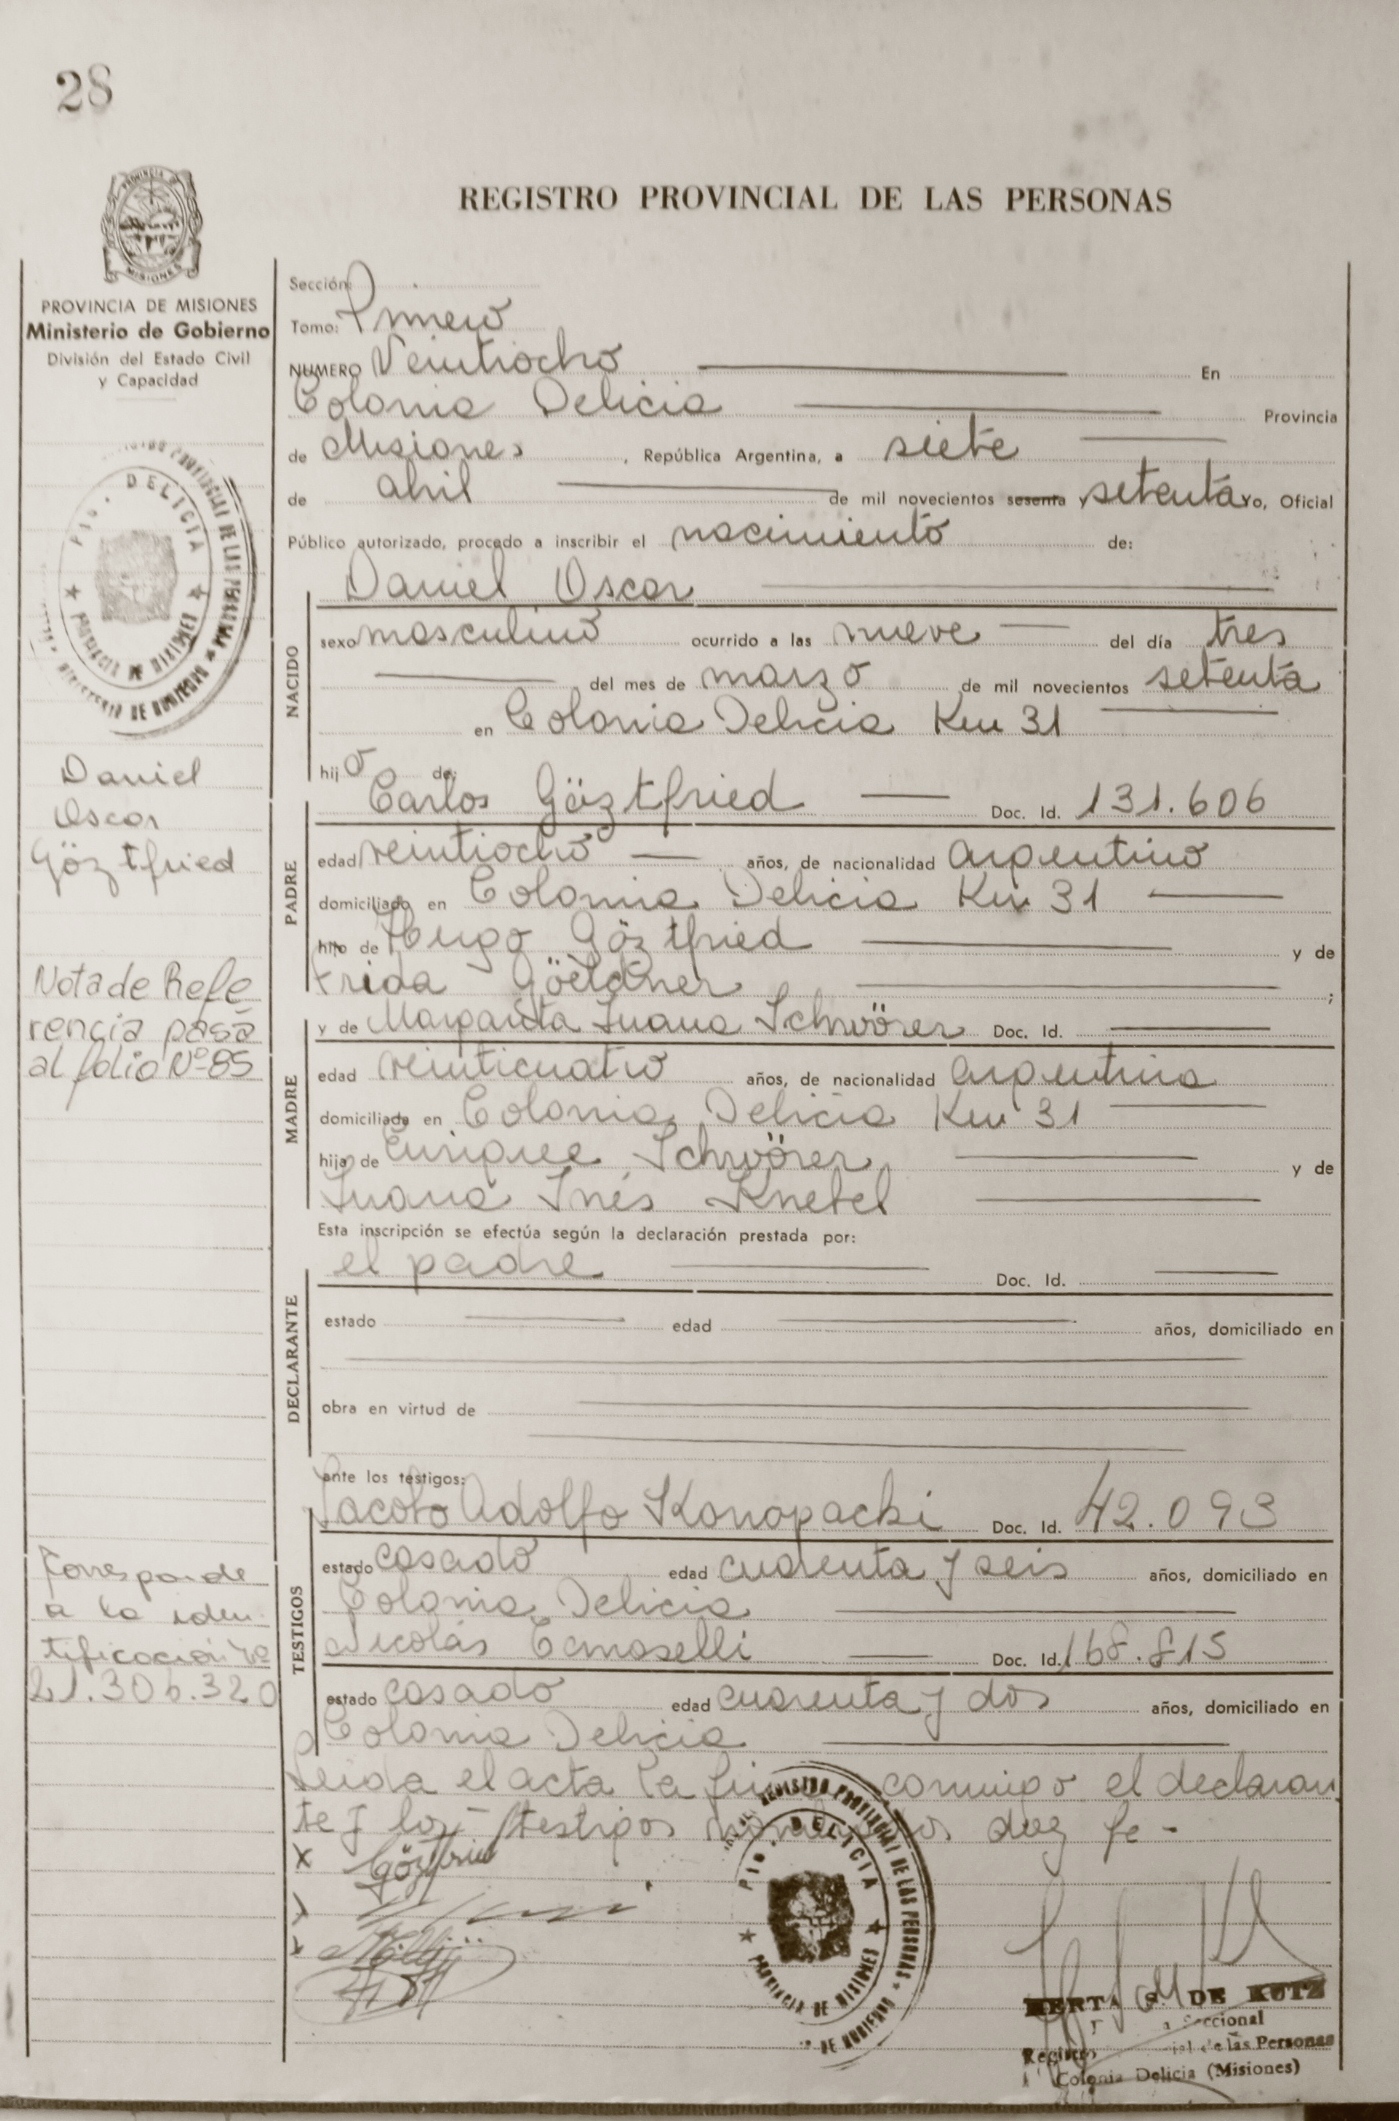 28
REGISTRO PROVINCIAL DE LAS PERSONAS
PROVINCIA DE MISIONES
Ministerio de Gobierno
División del Estado Civil
y Capacidad
Sección:
Tomo: Primero
NUMERO Veintiocho En
Colonia Delicia Provincia
de Misiones, República Argentina, a siete
de abril de mil novecientos sesenta y setenta Yo, Oficial
Público autorizado, procedo a inscribir el nacimiento de:
Daniel Oscar
NACIDO
sexo masculino ocurrido a las nueve del día tres
del mes de marzo de mil novecientos setenta
en Colonia Delicia Km 31
hijo de:
Carlos Göztfried Doc. Id. 131.606
PADRE
edad veintiocho años, de nacionalidad argentino
domiciliado en Colonia Delicia Km 31
hijo de Hugo Göztfried y de
Frida Göeldner ;
y de Margarita Juana Schwörer Doc. Id.
MADRE
edad veinticuatro años, de nacionalidad argentina
domiciliada en Colonia Delicia Km 31
hija de Enrique Schwörer y de
Juana Inés Knebel
Esta inscripción se efectúa según la declaración prestada por:
el padre Doc. Id.
DECLARANTE
estado edad años, domiciliado en
obra en virtud de
ante los testigos:
Jacobo Adolfo Konopacki Doc. Id. 42.093
TESTIGOS
estado casado edad cuarenta y seis años, domiciliado en
Colonia Delicia
Nicolás Doc. Id. 168.815
estado casado edad cuarenta y dos años, domiciliado en
Colonia Delicia
Leida el acta la conmigo el declaran
te y los testigos doy fe -
Daniel
Oscar
Göztfried
Nota de Refe
rencia pasa
al folio Nº 85
Corresponde
a la iden
tificación Nº
21.306.320
DELICIA
PROVINCIA DE MISIONES
REGISTRO PROVINCIAL DE LAS PERSONAS
DELICIA
PROVINCIA DE MISIONES
HERTA S. DE KUTZ
Seccional
de las Personas
Colonia Delicia (Misiones)